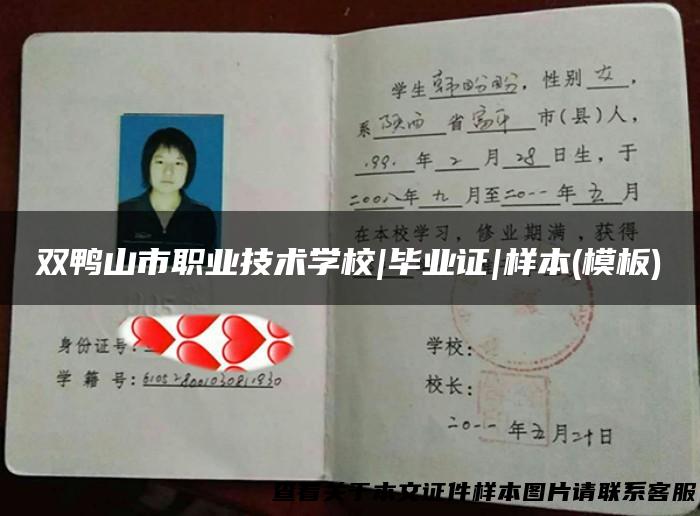 学生韩盼盼，性别女，
系陕西省富平市(县)人，
1991年2月28日生，于
二00八年九月至二0一一年五月
在本校学习，修业期满，获得
双鸭山市职业技术学校|毕业证|样本(模板)
身份证号：
学籍号：
学校：
校长：
二0一一年五月二十日
查看关于本文证件样本图片请联系客服